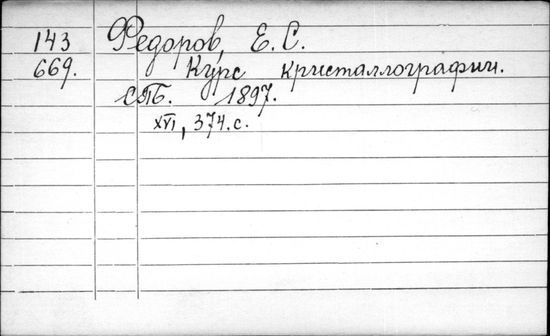 143 Федоров, Е. С.
669. Курс кристаллографии.
СПБ. 1897.
XVI, 374.с.